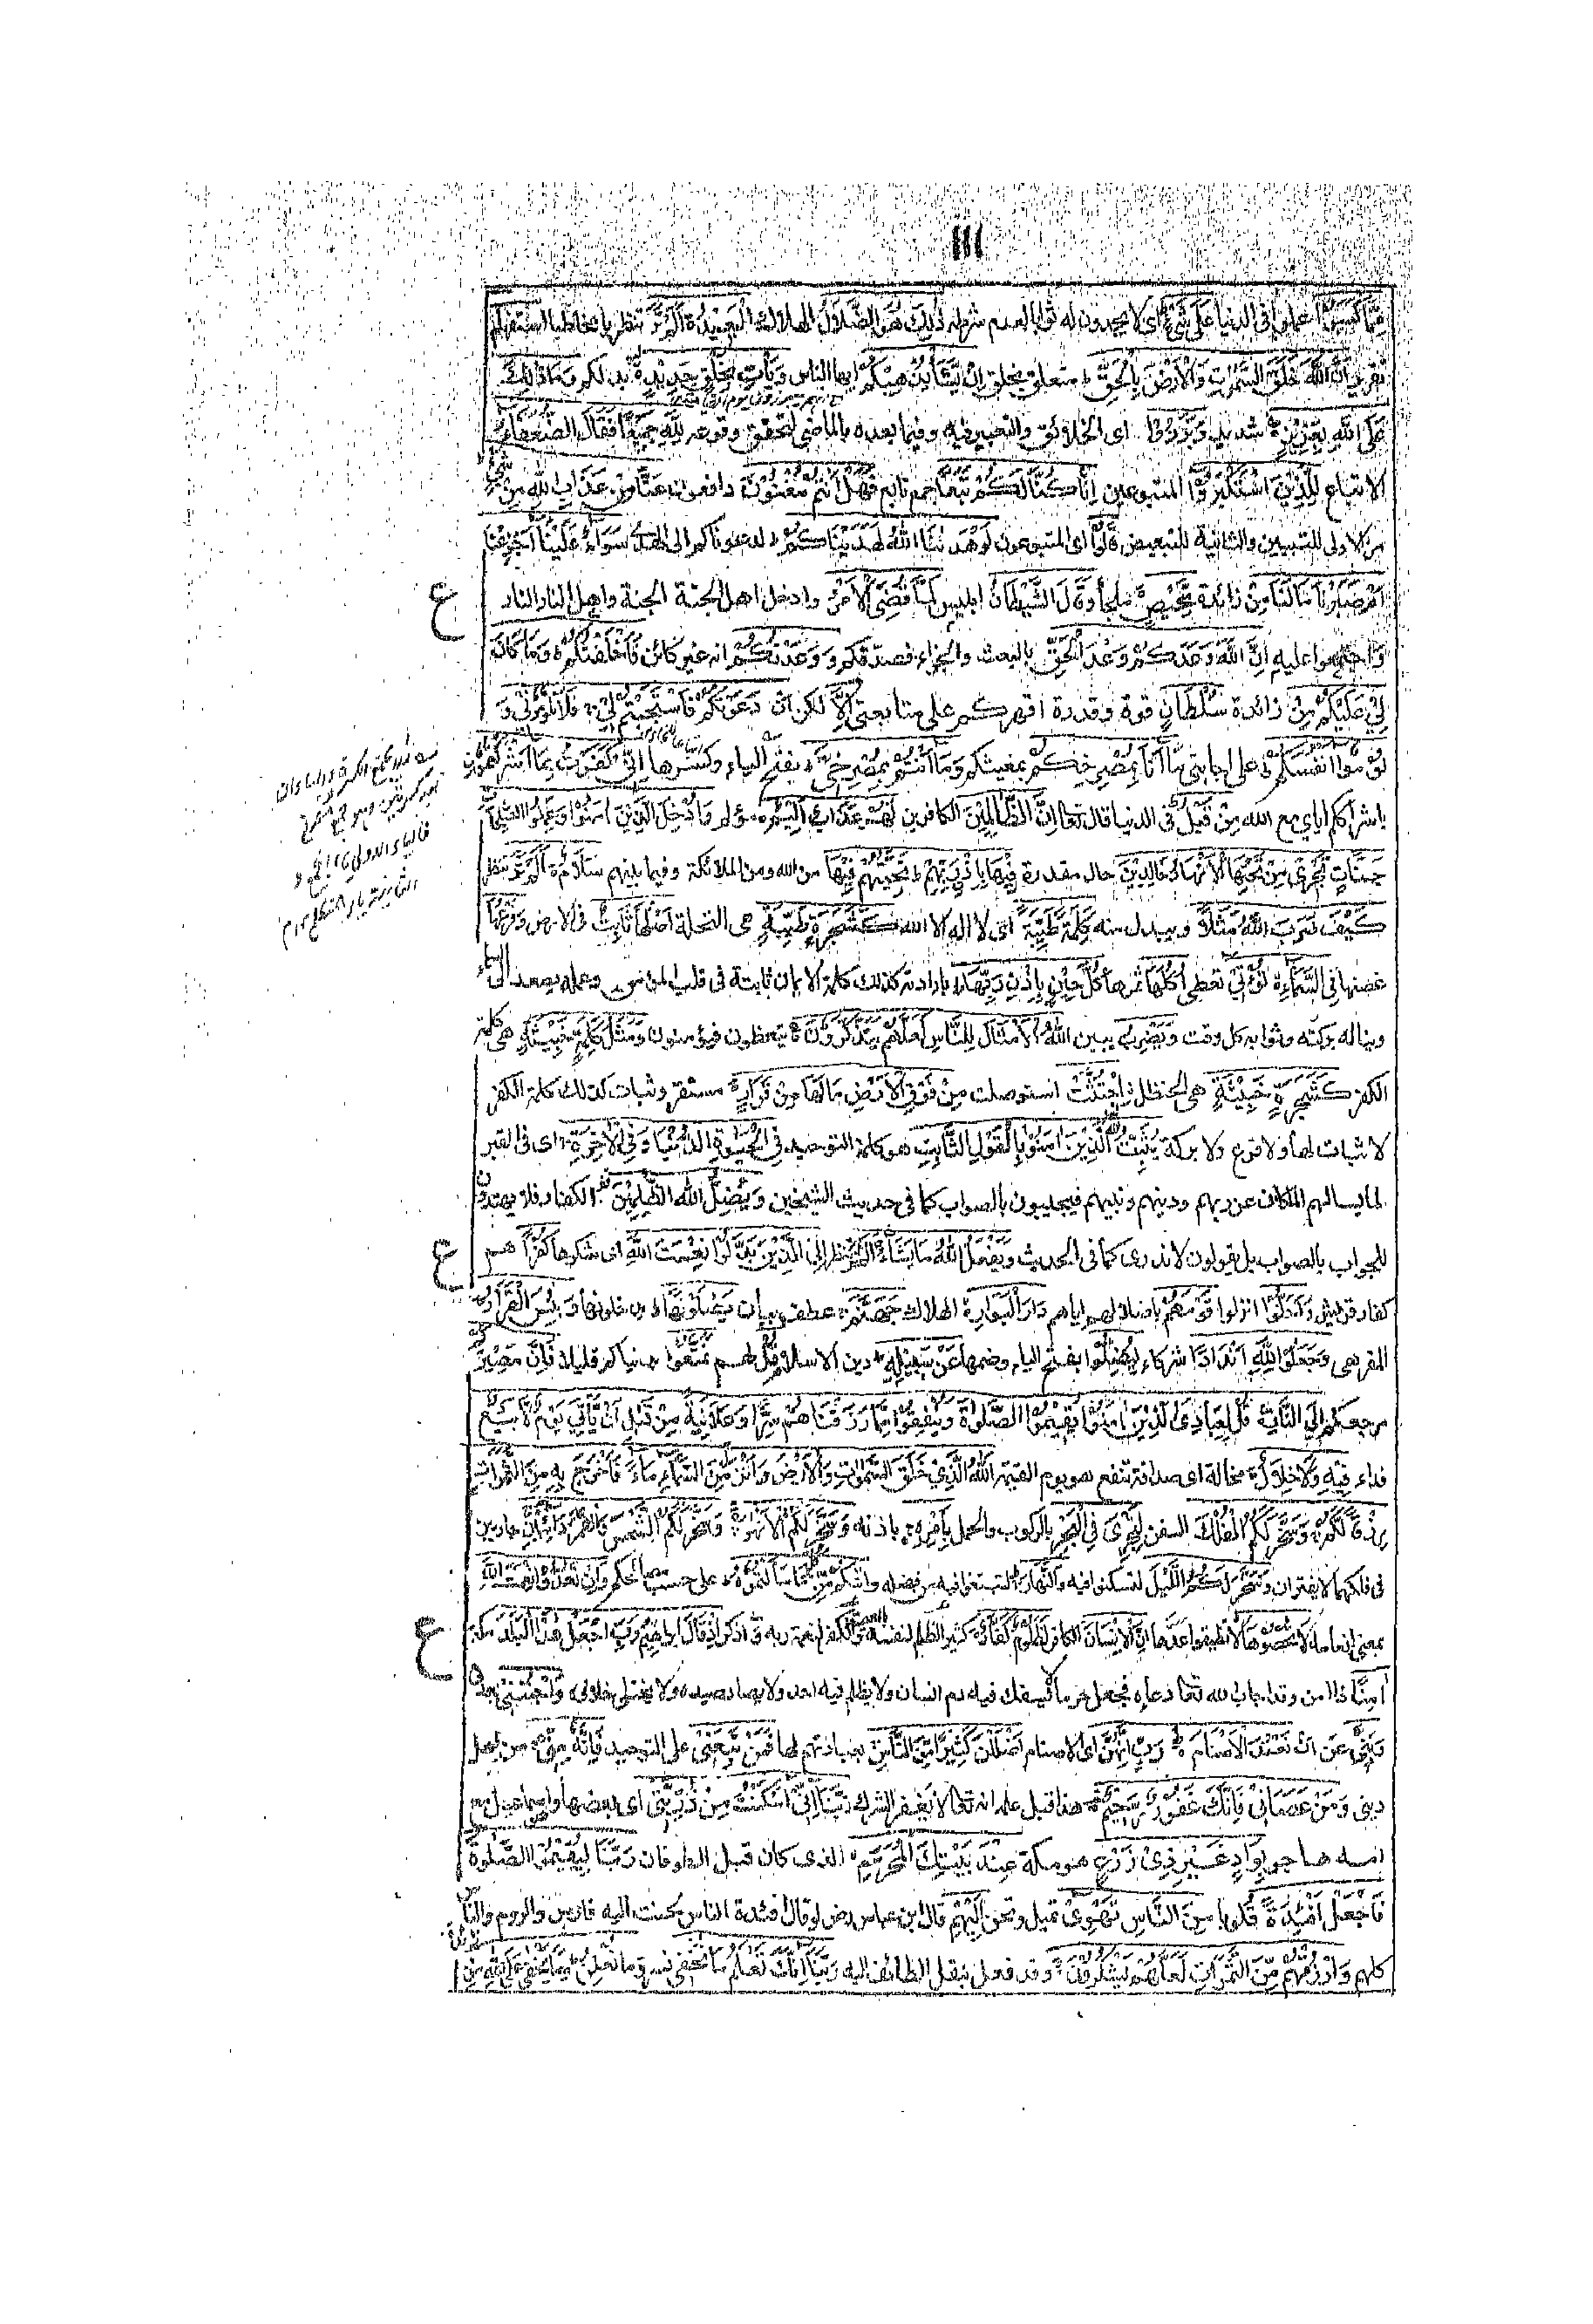 ااا
مِمَّا كَسَبُوْا عملوا فى الدنيا عَلٰى شَيْءٍ اى لا يجدون له ثوابا لعدم شرطه ذٰلِكَ هُوَ الضَّلٰلُ الهلاك الْبَعِيْدُ اَلَمْ تَرَ تنظر يا مخاطبا استفهام
تقرير اَنَّ اللّٰهَ خَلَقَ السَّمٰوٰتِ وَالْاَرْضَ بِالْحَقِّ متعلق بخلق اِنْ يَّشَأْ يُذْهِبْكُمْ ايها الناس وَيَأْتِ بِخَلْقٍ جَدِيْدٍ بدلكم وَمَا ذٰلِكَ
عَلَى اللّٰهِ بِعَزِيْزٍ شديد وَبَرَزُوْا اى الخلائق والتعبير فيه وفيما بعده بالماضى لتحقق وقوعه لِلّٰهِ جَمِيْعًا فَقَالَ الضُّعَفَاءُ
الاتباع لِلَّذِيْنَ اسْتَكْبَرُوْا المتبوعين اِنَّا كُنَّا لَكُمْ تَبَعًا جمع تابع فَهَلْ اَنْتُمْ مُّغْنُوْنَ دافعون عَنَّا مِنْ عَذَابِ اللّٰهِ مِنْ شَيْءٍ
من الاولى للتبيين والثانية للتبعيض قَالُوْا اى المتبوعون لَوْ هَدٰنَا اللّٰهُ لَهَدَيْنٰكُمْ لدعوناكم الى الهدى سَوَاءٌ عَلَيْنَا اَجَزِعْنَا
اَمْ صَبَرْنَا مَا لَنَا مِنْ زائدة مَّحِيْصٍ ملجأ وَقَالَ الشَّيْطَانُ ابليس لَمَّا قُضِيَ الْاَمْرُ وادخل اهل الجنة الجنة واهل النار النار
واجتمعوا عليه اِنَّ اللّٰهَ وَعَدَكُمْ وَعْدَ الْحَقِّ بالبعث والجزاء فصدقكم وَوَعَدْتُّكُمْ انه غير كائن فَاَخْلَفْتُكُمْ وَمَا كَانَ
لِيَ عَلَيْكُمْ مِنْ زائدة سُلْطَانٍ قوة وقدرة اقهركم على متابعتى اِلَّا لكن اَنْ دَعَوْتُكُمْ فَاسْتَجَبْتُمْ لِيْ فَلَا تَلُوْمُوْنِيْ وَ
لُوْمُوْا اَنْفُسَكُمْ على اجابتى مَا اَنَا بِمُصْرِخِكُمْ بمغيثكم وَمَا اَنْتُمْ بِمُصْرِخِيَّ بفتح الياء وكسرها اِنِّيْ كَفَرْتُ بِمَا اَشْرَكْتُمُوْنِ
باشراككم اياى مع الله مِنْ قَبْلُ فى الدنيا قال تعالى اِنَّ الظّٰلِمِيْنَ الكافرين لَهُمْ عَذَابٌ اَلِيْمٌ مؤلم وَاُدْخِلَ الَّذِيْنَ اٰمَنُوْا وَعَمِلُوا الصّٰلِحٰتِ
جَنّٰتٍ تَجْرِيْ مِنْ تَحْتِهَا الْاَنْهَارُ خَالِدِيْنَ حال مقدرة فِيْهَا بِاِذْنِ رَبِّهِمْ تَحِيَّتُهُمْ فِيْهَا من الله ومن الملائكة وفيما بينهم سَلَامٌ اَلَمْ تَرَ تنظر
كَيْفَ ضَرَبَ اللّٰهُ مَثَلًا ويبدل منه كَلِمَةً طَيِّبَةً اى لا اله الا الله كَشَجَرَةٍ طَيِّبَةٍ هى النخلة اَصْلُهَا ثَابِتٌ فى الارض وَفَرْعُهَا
غصنها فِى السَّمَاءِ تُؤْتِيْ تعطى اُكُلَهَا ثمرها كُلَّ حِيْنٍ بِاِذْنِ رَبِّهَا بارادته كذلك كلمة الايمان ثابتة فى قلب المؤمن وعمله يصعد الى السماء
ويناله بركته وثوابه كل وقت وَيَضْرِبُ يبين اللّٰهُ الْاَمْثَالَ لِلنَّاسِ لَعَلَّهُمْ يَتَذَكَّرُوْنَ يتعظون فيؤمنون وَمَثَلُ كَلِمَةٍ خَبِيْثَةٍ هى كلمة
الكفر كَشَجَرَةٍ خَبِيْثَةٍ هى الحنظل اجْتُثَّتْ استوصلت مِنْ فَوْقِ الْاَرْضِ مَا لَهَا مِنْ قَرَارٍ مستقر وثبات كذلك كلمة الكفر
لا ثبات لها ولا فرع ولا بركة يُثَبِّتُ اللّٰهُ الَّذِيْنَ اٰمَنُوْا بِالْقَوْلِ الثَّابِتِ هو كلمة التوحيد فِى الْحَيٰوةِ الدُّنْيَا وَفِى الْاٰخِرَةِ اى فى القبر
لما يسالهم الملكان عن ربهم ودينهم ونبيهم فيجيبون بالصواب كما فى حديث الشيخين وَيُضِلُّ اللّٰهُ الظّٰلِمِيْنَ الكفار فلا يهتدون
للجواب بالصواب بل يقولون لا ندرى كما فى الحديث وَيَفْعَلُ اللّٰهُ مَا يَشَاءُ اَلَمْ تَرَ تنظر اِلَى الَّذِيْنَ بَدَّلُوْا نِعْمَتَ اللّٰهِ اى شكرها كُفْرًا هم
كفار قريش وَاَحَلُّوْا انزلوا قَوْمَهُمْ باضلالهم اياهم دَارَ الْبَوَارِ الهلاك جَهَنَّمَ عطف بيان يَصْلَوْنَهَا يدخلونها وَبِئْسَ الْقَرَارُ
المقر هى وَجَعَلُوْا لِلّٰهِ اَنْدَادًا شركاء لِّيُضِلُّوْا بفتح الياء وضمها عَنْ سَبِيْلِهِ دين الاسلام قُلْ لهم تَمَتَّعُوْا بدنياكم قليلا فَاِنَّ مَصِيْرَكُمْ
مرجعكم اِلَى النَّارِ قُلْ لِعِبَادِيَ الَّذِيْنَ اٰمَنُوْا يُقِيْمُوا الصَّلٰوةَ وَيُنْفِقُوْا مِمَّا رَزَقْنَاهُمْ سِرًّا وَعَلَانِيَةً مِنْ قَبْلِ اَنْ يَّأْتِيَ يَوْمٌ لَا بَيْعٌ
فداء فِيْهِ وَلَا خِلٰلٌ مخالة اى صداقة تنفع هو يوم القيمة اَللّٰهُ الَّذِيْ خَلَقَ السَّمٰوٰتِ وَالْاَرْضَ وَاَنْزَلَ مِنَ السَّمَاءِ مَاءً فَاَخْرَجَ بِهِ مِنَ الثَّمَرَاتِ
رِزْقًا لَكُمْ وَسَخَّرَ لَكُمُ الْفُلْكَ السفن لِتَجْرِيَ فِى الْبَحْرِ بالركوب والحمل بِاَمْرِهِ باذنه وَسَخَّرَ لَكُمُ الْاَنْهَارَ وَسَخَّرَ لَكُمُ الشَّمْسَ وَالْقَمَرَ دَائِبَيْنِ جاريين
فى فلكهما لا يفتران وَسَخَّرَ لَكُمُ اللَّيْلَ لتسكنوا فيه وَالنَّهَارَ لتبتغوا فيه من فضله وَاٰتٰكُمْ مِنْ كُلِّ مَا سَاَلْتُمُوْهُ على حسب مصالحكم وَاِنْ تَعُدُّوْا نِعْمَتَ اللّٰهِ
بمعنى انعامه لَا تُحْصُوْهَا لا تطيقوا عدها اِنَّ الْاِنْسَانَ الكافر لَظَلُوْمٌ كَفَّارٌ كثير الظلم لنفسه بالمعصية والكفر لنعمة ربه وَ اذكر اِذْ قَالَ اِبْرَاهِيْمُ رَبِّ اجْعَلْ هٰذَا الْبَلَدَ مكة
اٰمِنًا ذا امن وقد اجاب الله تعالى دعاءه فجعل حرما لا يسفك فيه دم انسان ولا يظلم فيه احد ولا يصاد صيده ولا يختلى خلاؤه وَاجْنُبْنِيْ بعدنى
وَبَنِيَّ عن اَنْ نَعْبُدَ الْاَصْنَامَ رَبِّ اِنَّهُنَّ اى الاصنام اَضْلَلْنَ كَثِيْرًا مِنَ النَّاسِ بعبادتهم لها فَمَنْ تَبِعَنِيْ على التوحيد فَاِنَّهُ مِنِّيْ من اهل
دينى وَمَنْ عَصَانِيْ فَاِنَّكَ غَفُوْرٌ رَحِيْمٌ هذا قبل علمه انه تعالى لا يغفر الشرك رَبَّنَا اِنِّيْ اَسْكَنْتُ مِنْ ذُرِّيَّتِيْ اى بعضها وهو اسماعيل مع
امه هاجر بِوَادٍ غَيْرِ ذِيْ زَرْعٍ هو مكة عِنْدَ بَيْتِكَ الْمُحَرَّمِ الذى كان قبل الطوفان رَبَّنَا لِيُقِيْمُوا الصَّلٰوةَ
فَاجْعَلْ اَفْئِدَةً قلوبا مِنَ النَّاسِ تَهْوِيْ تميل وتحن اِلَيْهِمْ قال ابن عباس رض لو قال افئدة الناس لحنت اليه فارس والروم والناس
كلهم وَارْزُقْهُمْ مِنَ الثَّمَرَاتِ لَعَلَّهُمْ يَشْكُرُوْنَ وقد فعل بنقل الطائف اليه رَبَّنَا اِنَّكَ تَعْلَمُ مَا نُخْفِيْ نسر وَمَا نُعْلِنُ وَمَا يَخْفٰى عَلَى اللّٰهِ مِنْ
ع
ع
ع